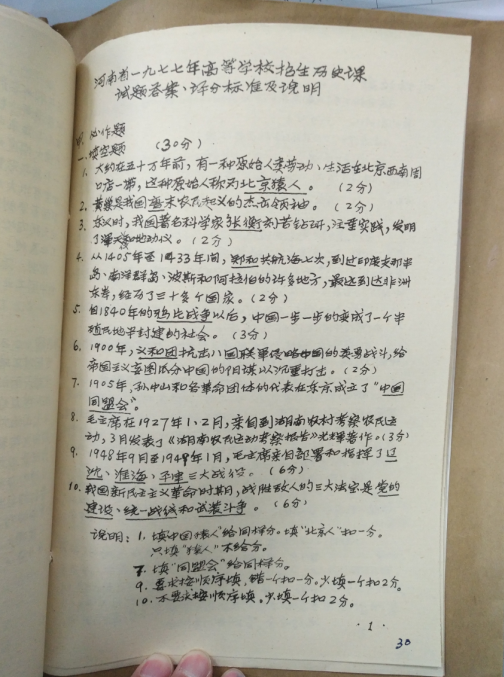 河南省一九七七年高等学校招生历史课
试题答案、评分标准及说明
必作题
一、填空题 (30分)
1. 大约在五十万年前，有一种原始人类劳动、生活在北京西南周
口店一带，这种原始人称为北京猿人。 (2分)
2. 黄巢是我国唐末农民起义的杰出领袖。 (2分)
3. 东汉时，我国著名科学家张衡刻苦钻研，注重实践，发明
了浑天仪和地动仪。(2分)
4. 从1405年至1433年间，郑和共航海七次，到过印度支那半
岛、南洋群岛、波斯和阿拉伯的许多地方，最远到达非洲
东岸，经历了三十多个国家。(2分)
5. 自1840年的鸦片战争以后，中国一步一步的变成了一个半
殖民地半封建的社会。 (3分)
6. 1900年，义和团抗击八国联军侵略中国的英勇战斗，给
帝国主义妄图瓜分中国的阴谋以沉重打击。(2分)
7. 1905年，孙中山和各革命团体的代表在东京成立了"中国
同盟会"。
8. 毛主席在1927年1、2月，亲自到湖南农村考察农民运
动，3月发表了《湖南农民运动考察报告》光辉著作。(3分)
9. 1948年9月至1949年1月，毛主席亲自部署和指挥了辽
沈、淮海、平津三大战役。 (6分)
10. 我国新民主主义革命时期，战胜敌人的三大法宝是党的
建设、统一战线和武装斗争。 (6分)
说明：1. 填"中国猿人"给同样分。填"北京人"扣一分。
只填"猿人"不给分。
7. 填"同盟会"给同样分。
9. 要求按顺序填，错一个扣一分。少填一个扣2分。
10. 不要求按顺序填。少填一个扣2分。
·1·
30